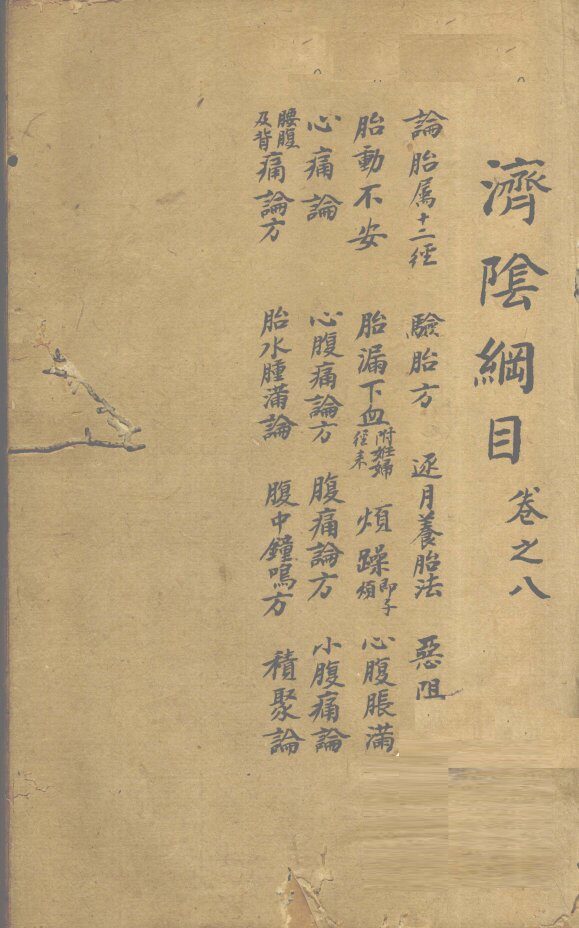 濟陰綱目 卷之八
論胎屬十二徑 驗胎方 逐月養胎法 惡阻
胎動不安 胎漏下血附妊婦徑來 煩躁即子煩 心腹脹滿
心痛論 心腹痛論方 腹痛論方 小腹痛論
腰腹及背痛論方 胎水腫滿論 腹中鐘鳴方 積聚論